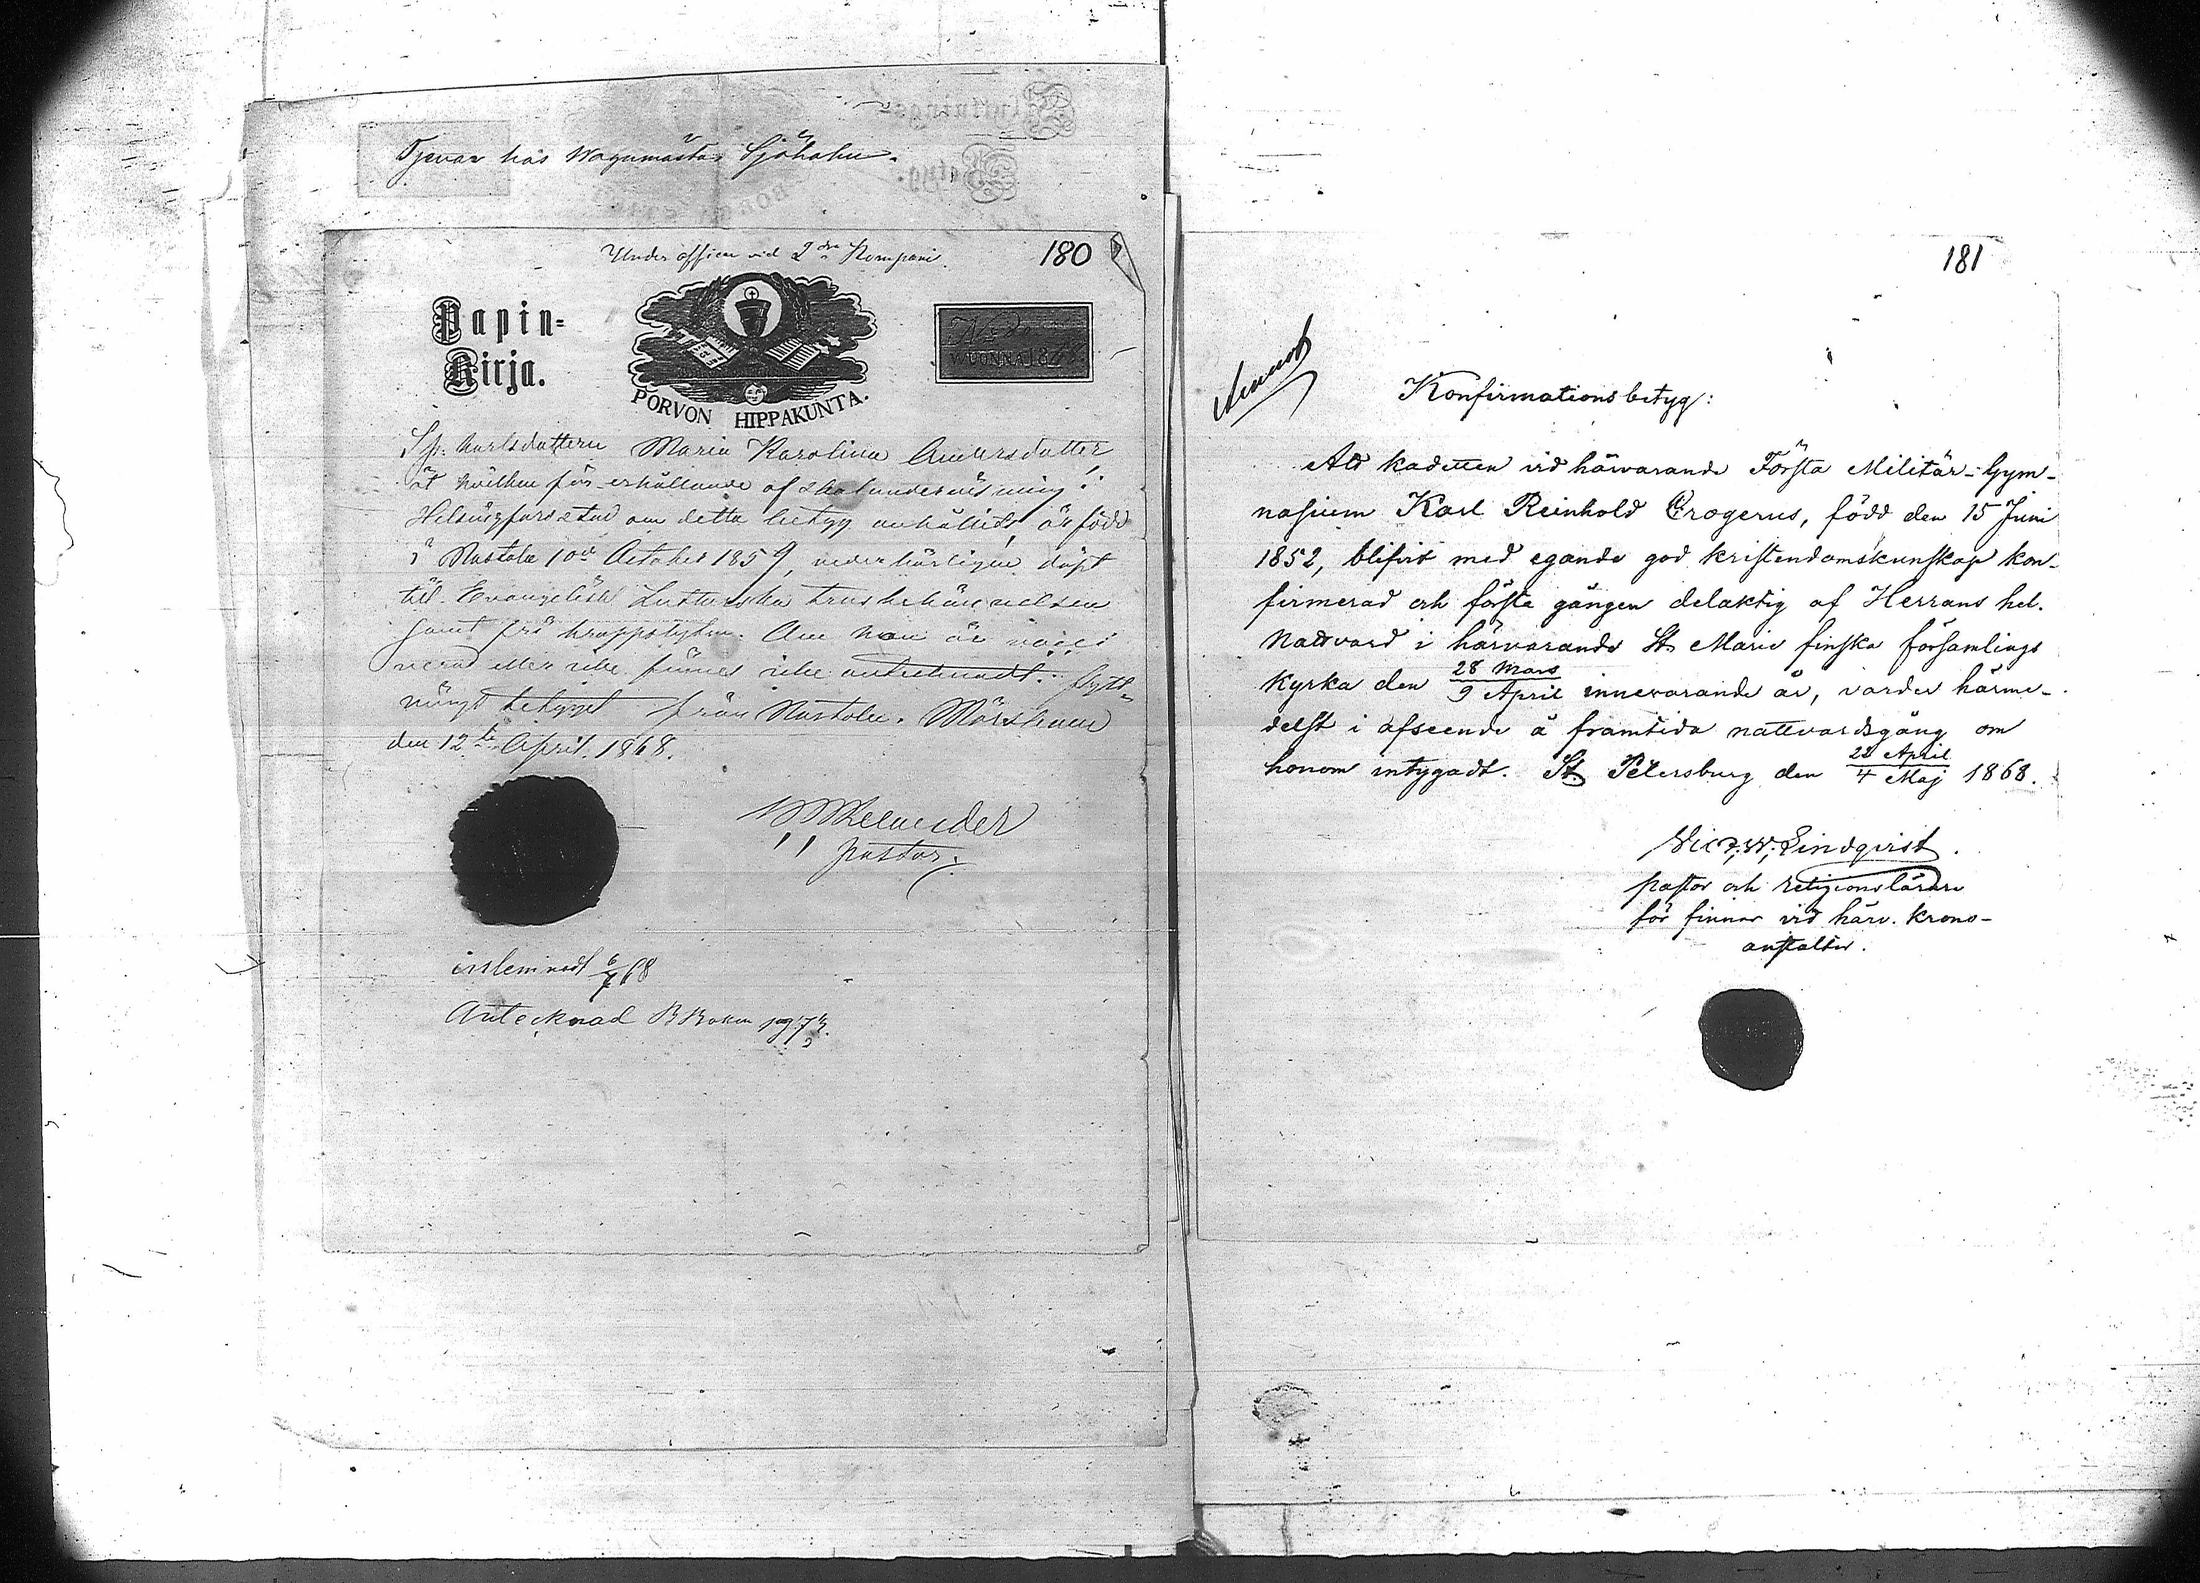 Tjenar hos Wagnmästar Sjöholm.
Under officer vid 2dra Kompani.
180
Papin=
Kirja.
PORVON HIPPAKUNTA.
WUONNA 18
Maria Karolina Andersdotter
åt hvilken för erhållande af skolundervisning i
Helsingfors stad om detta betyg anhållits, är född
i Nastola 10de October 1859, vederbörligen döpt
till Evangelisk Lutherska trosbekännelsen
samt fri kroppslyten. Om hon är vacci
nerad eller icke finnes icke antecknadt. flytt-
nings betyget från Nastola. Mörskom
den 12te April. 1868.
pastor.
inlemnadt 6/7 68
Antecknad B Boken pag 73.
181
Konfirmationsbetyg:
Att kadetten vid härvarande Första Militär-Gym-
nasium Karl Reinhold Crogerus, född den 15 Juni
1852, blifvit med egande god kristendomskunskap kon-
firmerad och första gången delaktig af Herrans hel.
Nattvard i härvarande St. Marie finska församlings
Kyrka den 28 Mars / 9 April innevarande år, varder härme-
delst i afseende å framtida nattvardsgång om
honom intygadt. St. Petersburg den 22 April / 4 Maj 1868.
Vict. W. Lindqvist.
pastor och religionslärare
för finnar vid härv. krono-
anstalter.